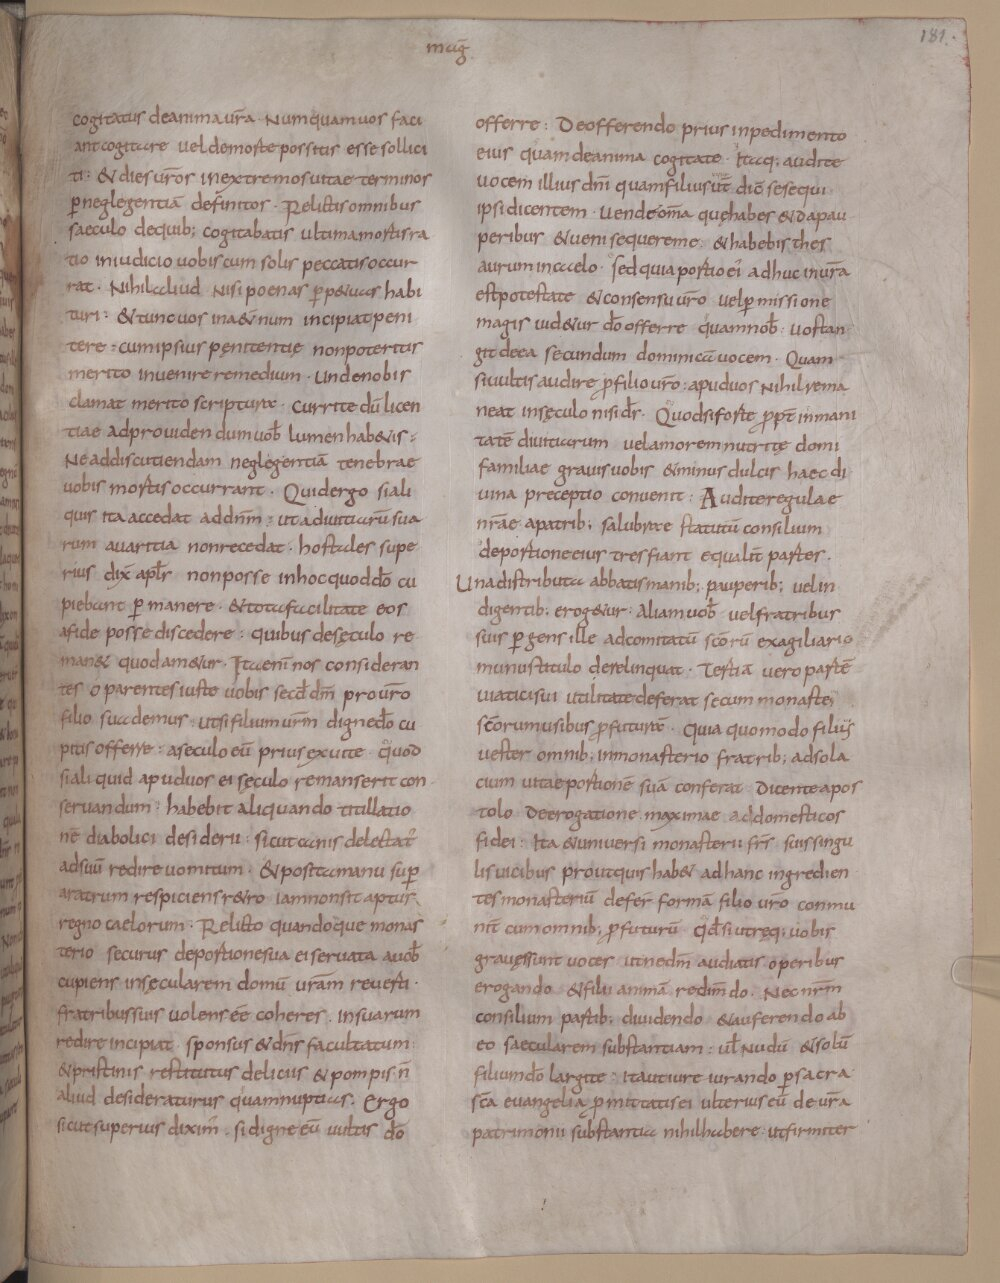 mag̅
181.
cogitatus deanima ur̅a. Numquam uos faci
ant cogitare uel demorte possitis esse sollici
ti: & dies ur̅os inextremos uitae terminos
p̲ neglegentia̅ definitos. Relictis omnibus
saeculo dequib; cogitabatis ultima mortis ra
tio iniudicio uobiscum solis peccatis occur
rat. Nihil aliud nisi poenas p̲p&uas habi
turi: & tunc uos ina&ernum incipiat peni
tere: cum ipsius penitentię non poteritis
merito inuenire remedium. Unde nobis
clamat merito scriptura. Currite du̅ licen
tiae ad prouidendum uob̅ lumen hab&is:
Ne addiscutiendam neglegentia̅ tenebrae
uobis mortis occurrant. Quid ergo si ali
quis ita accedat ad dn̅m: ut adiuitiaru̅ sua
rum auaritia non recedat. hos tales supe
rius dix̅ apl̅s non posse inhoc quod do̅ cu
piebant p̲manere. & tota facilitate eos
afide posse discedere: quibus desęculo re
man& quod am&ur. Ita eni̅ nos consideran
tes o parentes iuste uobis secd̅ dm̅ pro ur̅o
filio suademus. ut si filium ur̅m digne do̅ cu
pitis offerre: aseculo eu̅ prius exuite. quod
si aliquid apud uos ei sęculo remanserit con
seruandum. habebit aliquando titillatio
ne̅ diabolici desiderii: sicut canis delectat̅
ad suu̅ redire uomitum. & post tamanu sup̲
aratrum respiciens r&ro iam non sit aptus
regno caelorum. Relicto quandoque monas
terio securus deportione sua ei seruata auob̅
cupiens insęcularem domu̅ ur̅am reuerti.
fratribus suis uolens ee̅ coheres. insuarum
redire incipiat sponsus & dn̅s facultatum
& pristinis restitutus deliciis & pompis n̅
aliud desideraturus quam nuptias. Ergo
sicut superius dixim̅. si digne eu̅ uultis do̅
offerre: De offerendo prius inpedimento
eius quam deanima cogitate. Itaq; audite
uocem illius dn̅i quam filius ut̅ dic̅ se sequi
ipsi dicentem. Uende om̅a quę habes & da pau
peribus & ueni sequere me. & habebis thes
aurum incaelo. Sed quia portio ei̅ adhuc inur̅a
est potestate & consensu ur̅o uel p̲missione
magis uid&ur do̅ offerre quam nob̅: uos tan
git de ea secundum dominicam uocem. Quam
si uultis audire p̲ filio ur̅o: apud uos nihil rema
neat insęculo nisi ds̅. Quod si forte p̲pt̅ inmani
tate̅ diuitiarum uel amorem nutritę domi
familiae grauis uobis & minus dulcis haec di
uina preceptio conuenit: Audite regulae
nr̅ae apatrib; salubrae statutu̅ consilium
deportione eius tres fiant equalit̅ partes.
Una distributa abbatis manib; pauperib; uel in
digentib; erog&ur. Aliam uob̅ uel fratribus
suis pergens ille adcomitatu̅ sc̅oru̅ exagiliario
munustitulo derelinquat. Tertia̅ uero parte̅
uiatici sui utilitate deferat secum monaste̅
sc̅orum usibus profuturę. Quia quomodo filius
uester omnib; inmonasterio fratrib; adsola
cium uitae portione̅ sua̅ conferat dicente apos
tolo de erogatione maximae addomesticos
fidei: Ita & uniuersi monasterii frs̅ suis singu
lis uicibus prout quis hab& ad hanc ingredien
tes monasteriu̅ defer̅ forma̅ filio uro̅ conmu
nit̅ cum omnib; p̲futuru̅ qd̅ si utręq; uobis
grauessunt uoces ut ne dm̅ audiatis operibus
erogando & filii anima̅ redim̅do. Nec nr̅m
consilium partib; diuidendo & auferendo ab
eo saecularem substantiam: ul̅ nudu̅ & solu̅
filium do̅ largite: Ita ut iure iurando p̲ sacra
sc̅a euangelia p̲mittatis ei ulterius eu̅ de ur̅a
patrimonii substantia nihil habere. ut firmiter